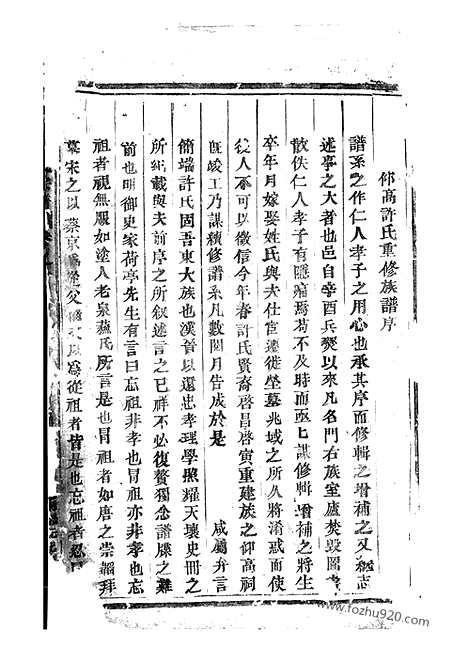 仰高許氏重修族譜序
譜系之作仁人孝子之用心也承其序而修輯之增補之又繼志
述事之大者也邑自辛酉兵燹以來凡名門右族室廬焚毀圖書
散佚仁人孝子有隱痛焉苟不及時而亟亟謀修輯增補之將生
卒年月嫁娶姓氏與夫仕宦遷徙塋墓兆域之所久將淆惑而使
後人不可以徵信今年春許氏賢裔啓昌啓寅重建族之仰高祠
既峻工乃謀續修譜系凡數閱月告成於是 咸屬弁言
簡端許氏固吾東大族也漢晉以還忠孝理學照耀天壤史冊之
所紀載與夫前序之所叙述言之已詳不必復贅獨念譜牒之難
前也明御史家荷亭先生有言曰忘祖非孝也冒祖亦非孝也忘
祖者視無服如塗人老泉蘇氏所言是也冒祖者如唐之崇韜拜
墓宋之以蔡京 父 以爲從祖者皆是也忘祖者
www.fozhu920.com